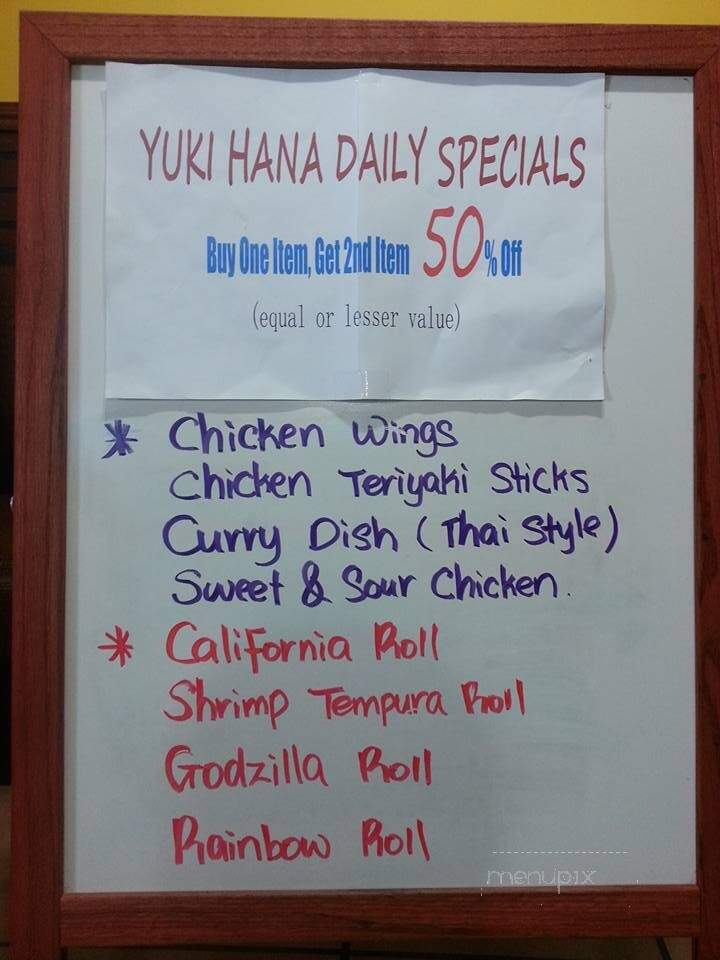 YUKI HANA DAILY SPECIALS
Buy One Item, Get 2nd Item 50% Off
(equal or lesser value)
* Chicken Wings
Chicken Teriyaki Sticks
Curry Dish (Thai Style)
Sweet & Sour Chicken.
* California Roll
Shrimp Tempura Roll
Godzilla Roll
Rainbow Roll
menupix